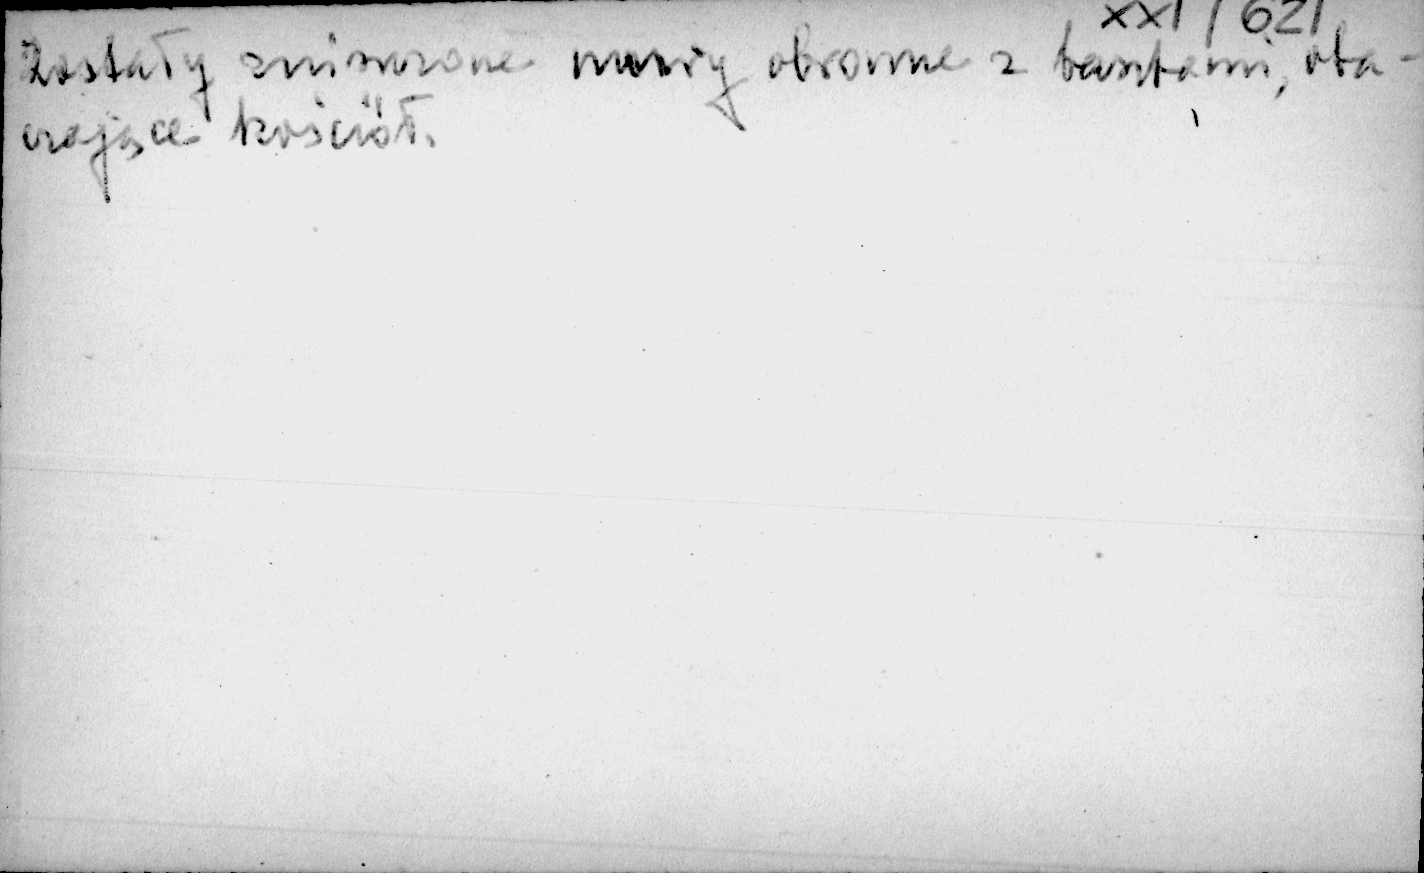 XXI / 621
Zostały zniszczone mury obronne z basztami, ota-
czające kościół.